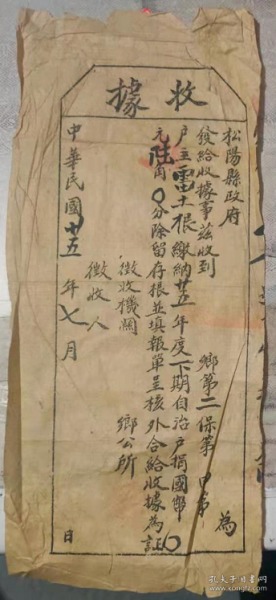 收據
松陽縣政府 為
發給收據事茲收到 鄉第二保第 甲第
戶主雷土根繳納廿五年度下期自治戶捐國幣〇
元陸角〇分除留存根並填報單呈核外合給收據為証
徵收機關 鄉公所
徵收人
中華民國廿五年七月 日